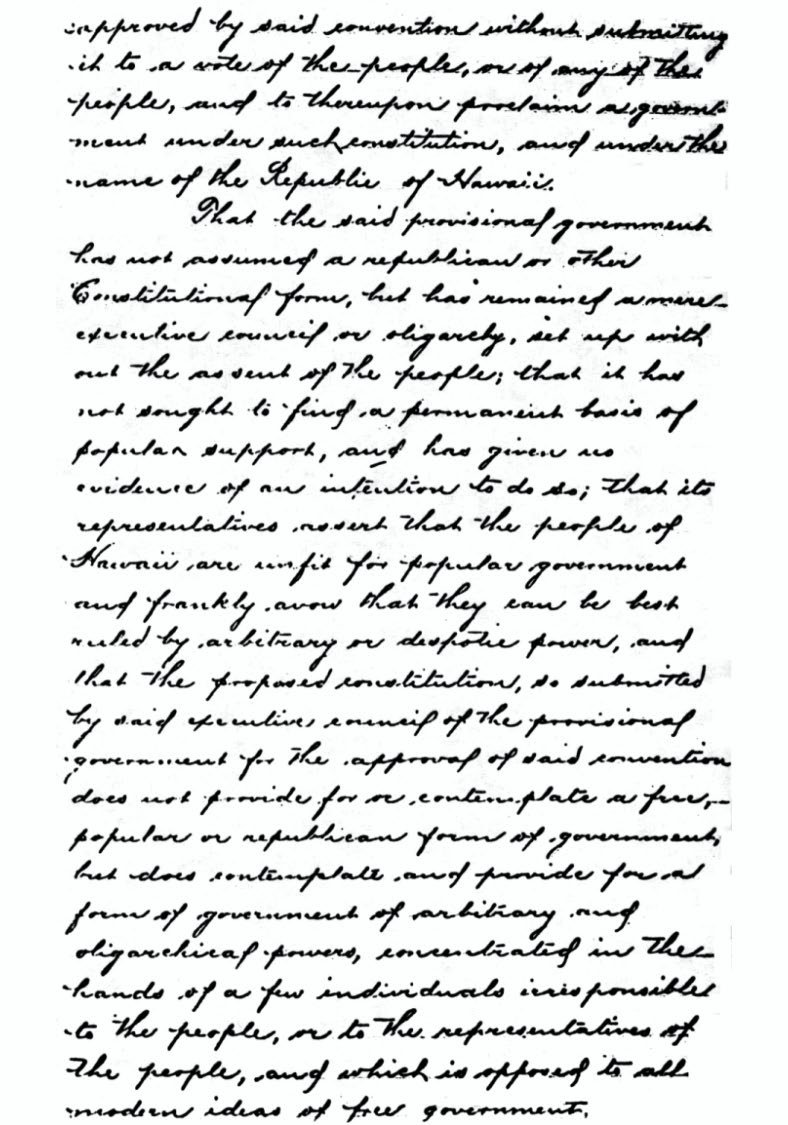 approved by said convention without submitting
it to a vote of the people, or of any of the
people, and to thereupon proclaim a govern-
ment under such constitution, and under the
name of the Republic of Hawaii.
That the said provisional government
has not assumed a republican or other
Constitutional form, but has remained a mere
executive council or oligarchy, set up with
out the assent of the people; that it has
not sought to find a permanent basis of
popular support, and has given no
evidence of an intention to do so; that its
representatives assert that the people of
Hawaii are unfit for popular government
and frankly avow that they can be best
ruled by arbitrary or despotic power, and
that the proposed constitution, so submitted
by said executive council of the provisional
government for the approval of said convention
does not provide for or contemplate a free,
popular or republican form of government,
but does contemplate and provide for a
form of government of arbitrary and
oligarchical powers, concentrated in the
hands of a few individuals irresponsible
to the people, or to the representatives of
the people, and which is opposed to all
modern ideas of free government.